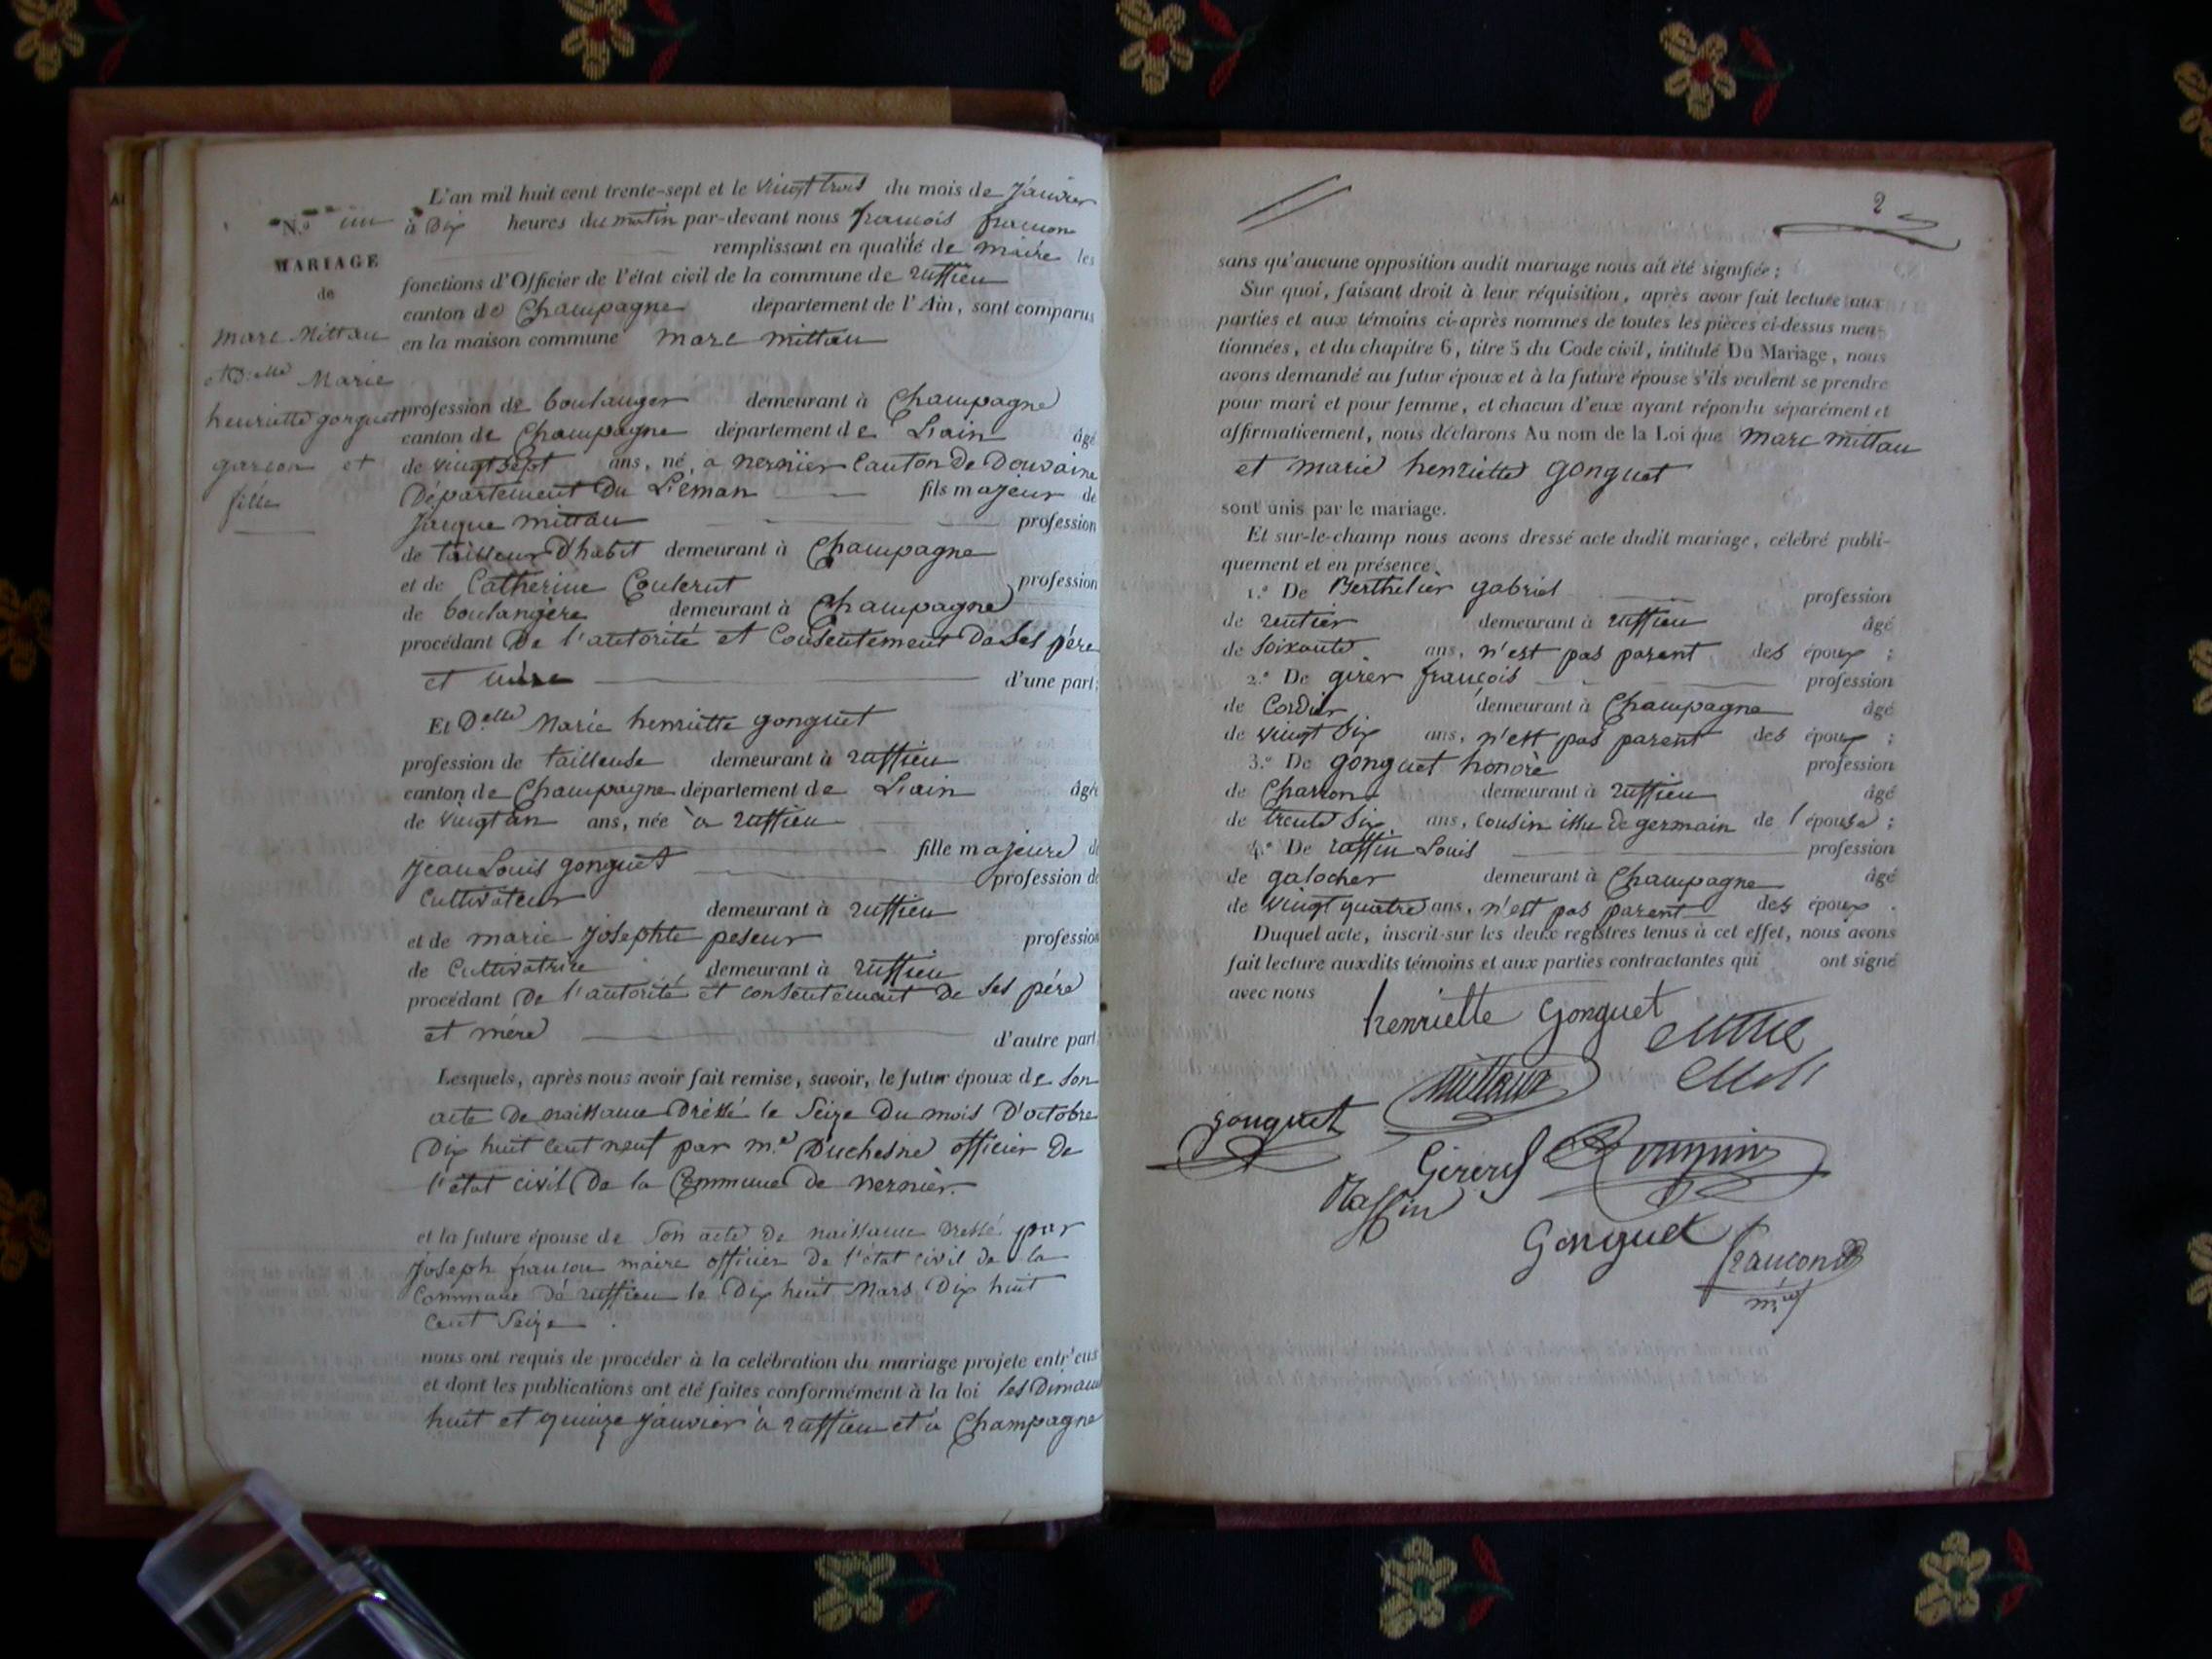 L'an mil huit cent trente-sept et le vingt trois du mois de janvier
N.o un
à dix heures du matin par-devant nous francois francon
remplissant en qualité de maire les
MARIAGE
fonctions d'Officier de l'état civil de la commune de ruffieu
de
canton de Champagne département de l'Ain, sont comparus
marc Mittau
en la maison commune marc mittau
et D.elle Marie
henriette gonguet
profession de boulanger demeurant à Champagne
canton de Champagne département de L'ain âgé
garcon et
de vingt sept ans, né a nernier Canton De Douvaine
fille
Département Du Léman fils majeur de
Jacque mittau profession
de tailleur D'habit demeurant à Champagne
et de Catherine Couterut profession
de boulangère demeurant à Champagne
procédant De l'autorité et Consentement De Ses père
et mère d'une part;
Et D.elle Marie henriette gonguet
profession de tailleuse demeurant à ruffieu
canton de Champagne département de L'ain âgée
de vingt un ans, née à ruffieu
fille majeure de
Jean Louis gonguet profession de
Cultivateur demeurant à ruffieu
et de marie josephte peseur profession
de Cultivatrice demeurant à ruffieu
procédant De l'autorité et consentement De Ses père
et mère d'autre part
Lesquels, après nous avoir fait remise, savoir, le futur époux de Son
acte De naissance Dréssé le Seize Du mois D'octobre
Dix huit Cent neuf par m.e Duchesne officier De
l'état civil De la Commune De nernier.
et la future épouse de Son acte de naissance Dressé par
Joseph francon maire officier De l'état civil de la
Commune De ruffieu le Dix huit Mars Dix huit
Cent Seize.
nous ont requis de procéder à la celébration du mariage projete entr'eux
et dont les publications ont été faites conformément à la loi les Dimanc
huit et quinze janvier à ruffieu et à Champagne
2
sans qu'aucune opposition audit mariage nous ait été signifiée;
Sur quoi, faisant droit à leur réquisition, après avoir fait lecture aux
parties et aux témoins ci-après nommes de toutes les pièces ci-dessus men-
tionnées, et du chapitre 6, titre 5 du Code civil, intitulé Du Mariage, nous
avons demandé au futur époux et à la future épouse s'ils veulent se prendre
pour mari et pour femme, et chacun d'eux ayant répondu séparément et
affirmativement, nous déclarons Au nom de la Loi que Marc mittau
et marie henriette gonguet
sont unis par le mariage.
Et sur-le-champ nous avons dressé acte dudit mariage, célébré publi-
quement et en présence
1.o De Berthelier gabriel profession
de rentier demeurant à ruffieu âgé
de Soixante ans, n'est pas parent des époux;
2.o De girer françois profession
de Cordier demeurant à Champagne âgé
de vingt Six ans, n'est pas parent des époux;
3.o De gonguet honoré profession
de Charron demeurant à ruffieu âgé
de trente Six ans, Cousin issu De germain de l'épouse;
4.o De raffin Louis profession
de galocher demeurant à Champagne âgé
de vingt quatre ans, n'est pas parent des époux.
Duquel acte, inscrit sur les deux registres tenus à cet effet, nous avons
fait lecture auxdits témoins et aux parties contractantes qui ont signé
avec nous
henriette Gonguet
Mittaux
gonguet
Girerd
Raffin
Gonguet
francon